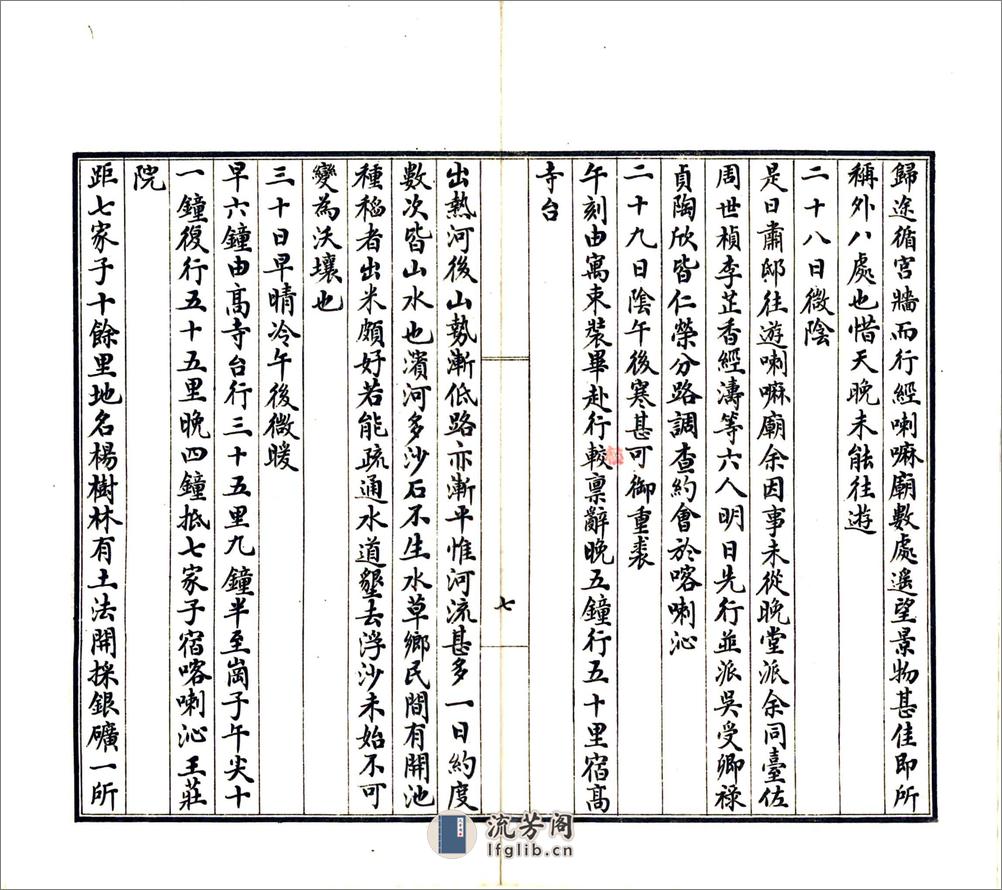 歸途循宮牆而行經喇嘛廟數處遙望景物甚佳即所
稱外八處也惜天晚未能往遊
二十八日微陰
是日肅邸往遊喇嘛廟余因事未從晚堂派余同臺佐
周世楨李芷香經濤等六人明日先行並派吳受卿祿
貞陶欣皆仁榮分路調查約會於喀喇沁
二十九日陰午後寒甚可御重裘
午刻由寓束裝畢赴行較稟辭晚五鐘行五十里宿高
寺台
七
出熱河後山勢漸低路亦漸平惟河流甚多一日約度
數次皆山水也濱河多沙石不生水草鄉民間有開池
種稻者出米頗好若能疏通水道墾去浮沙未始不可
變為沃壤也
三十日早晴冷午後微暖
早六鐘由高寺台行三十五里九鐘半至崗子午尖十
一鐘復行五十五里晚四鐘抵七家子宿喀喇沁王莊
院
距七家子十餘里地名楊樹林有土法開採銀礦一所
流芳阁
lfglib.cn